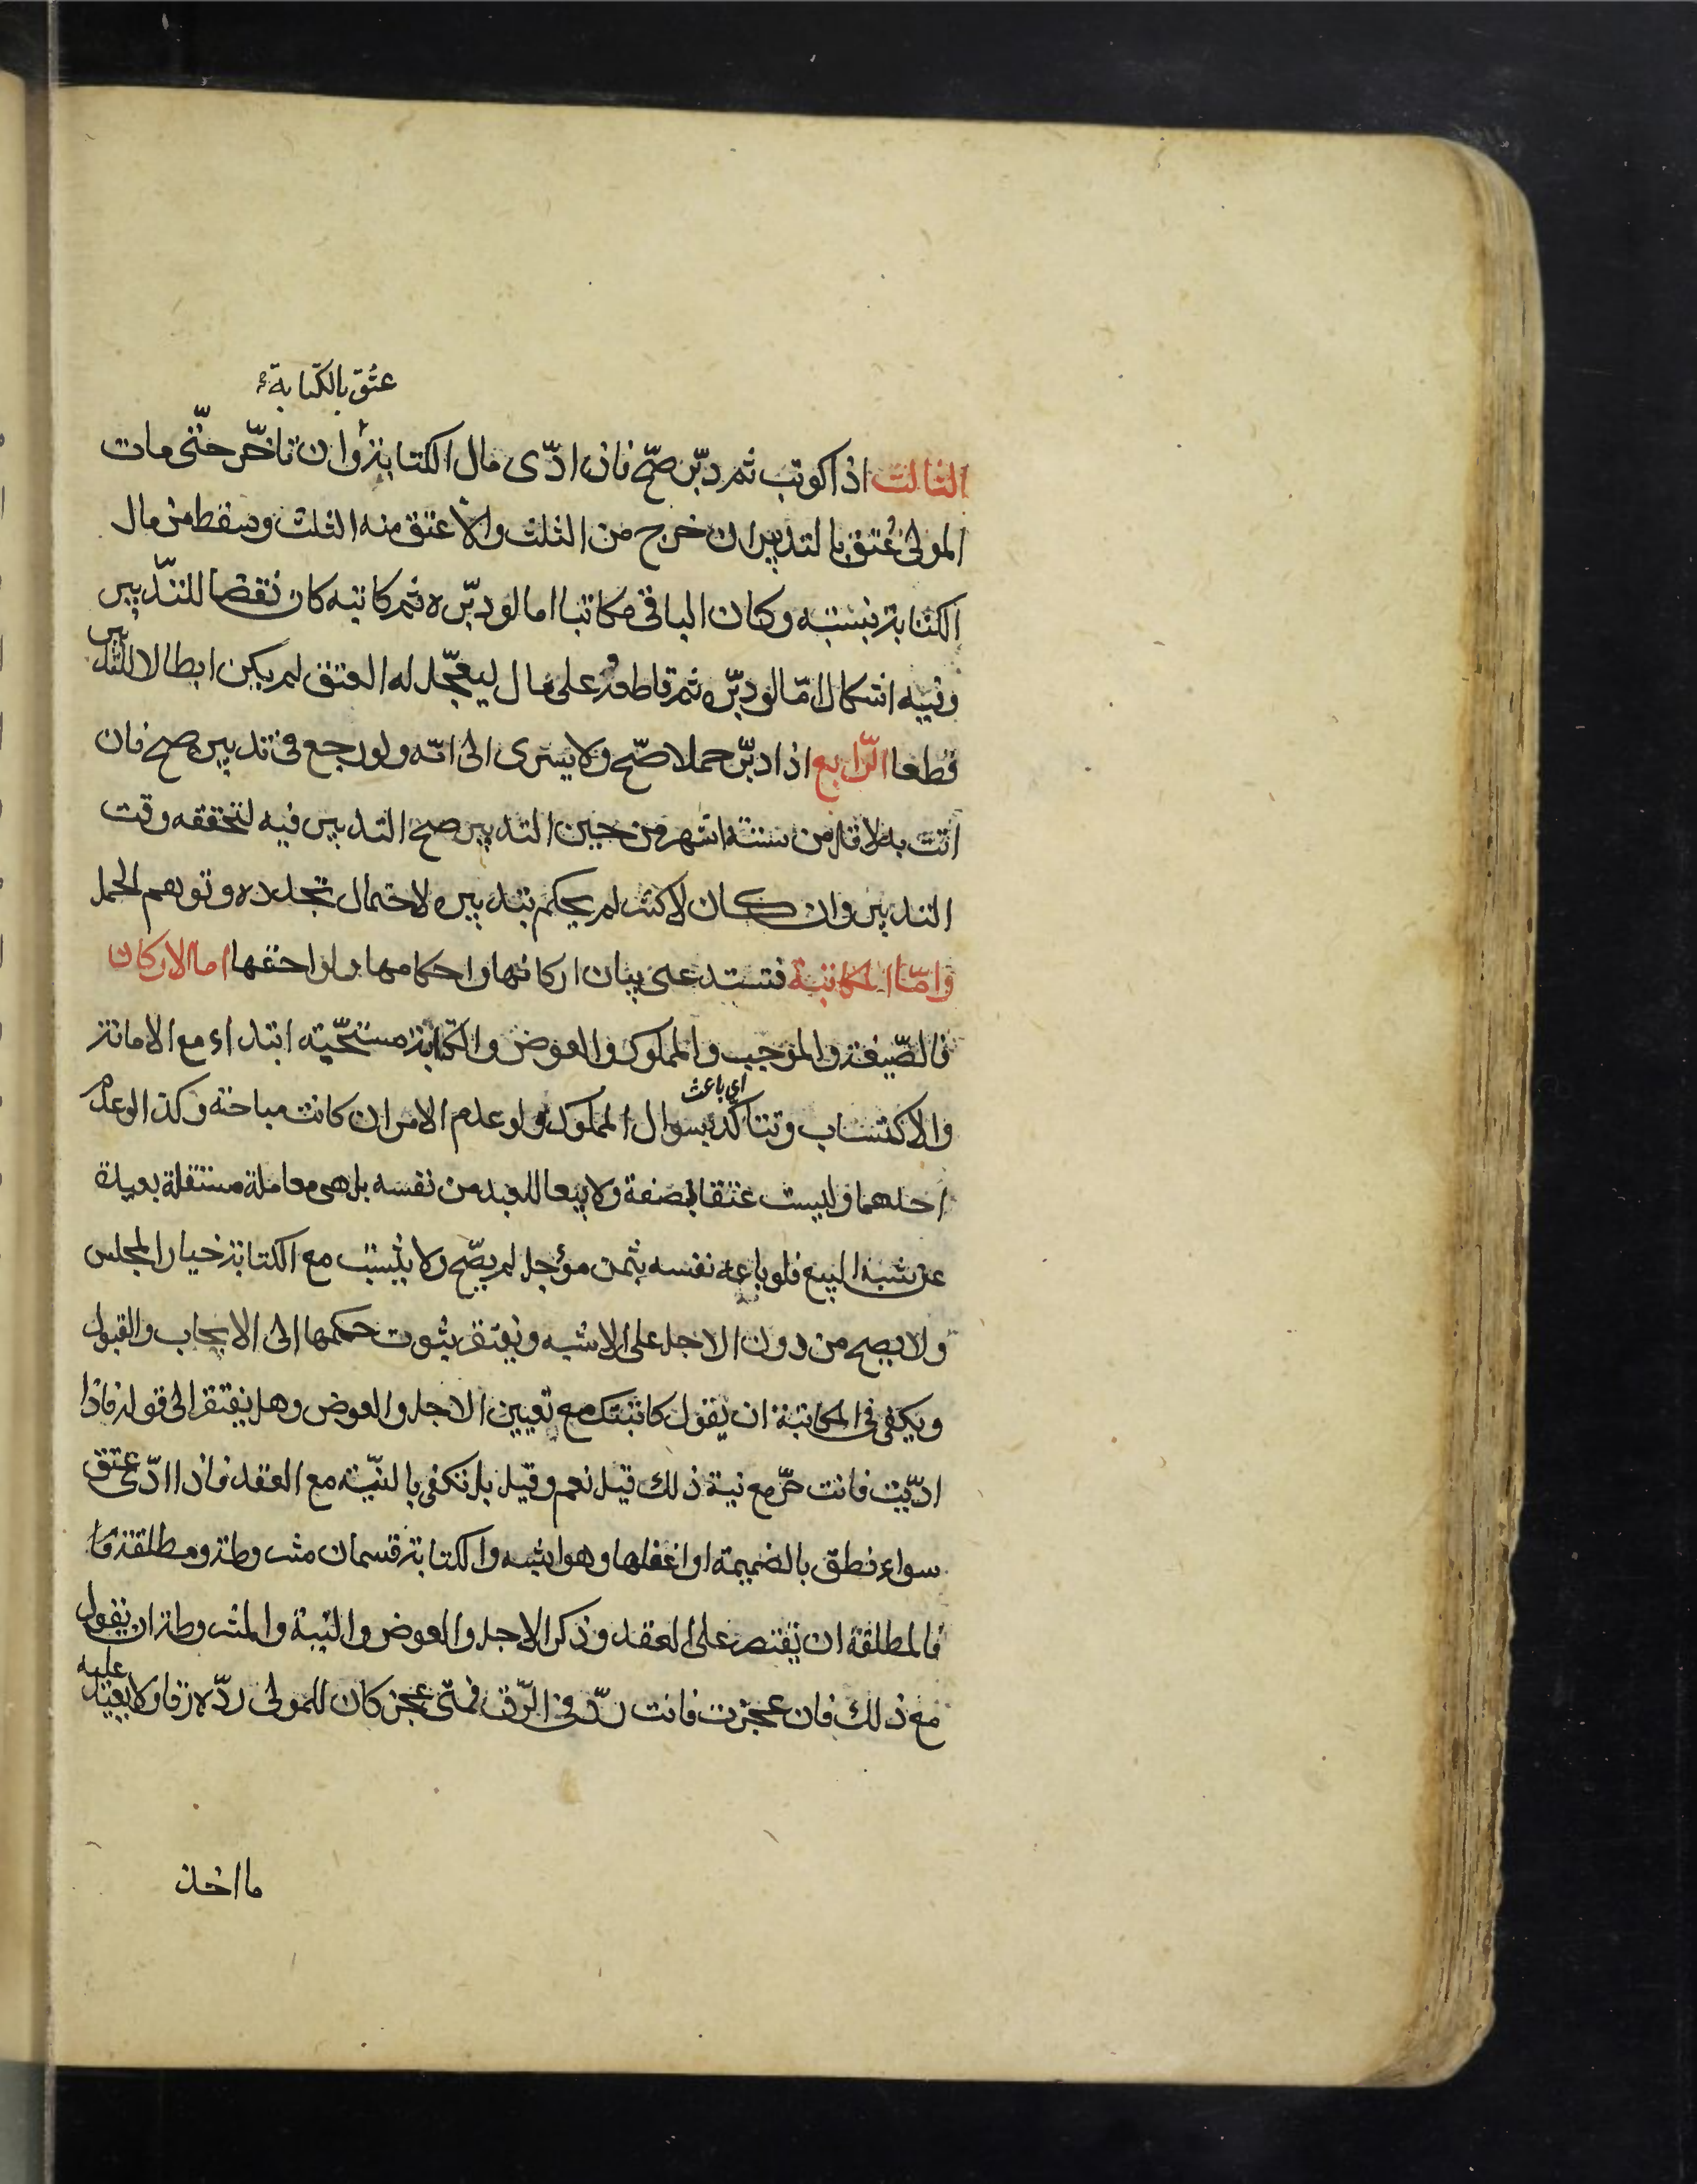 عتق بالكتابة
الثالث اذا كوتب ثم دبّر صحّ فان ادّى مال الكتابة وان تاخّر حتّى مات
المولى عُتق بالتدبير ان خرج من الثلث والّا عتق منه الثلث وسقط من مال
الكتابة بنسبته وكان الباقى مكاتبا اما لو دبّره ثم كاتبه كان نقضا للتّدبير
وفيه اشكال امّا لو دبّره ثم قاطعه على مال ليعجّل له العتق لم يكن ابطالا للتدبير
قطعا الرّابع اذا دبّر حملا صّح ولا يسرى الى امّه ولو رجع فى تدبيره صح فان
اتت به لاقل من ستة اشهر من حين التدبير صح التدبير فيه لتحققه وقت
التدبير وان كان لاكثر لم يحكم بتدبيره لاحتمال تجدده وتوهم الحمل
وامّا المكاتبة فتستدعى بيان اركانها واحكامها ولواحقها اما الاركان
فالصّيغة والموجب والمملوك والعوض والكتابة مستحّبة ابتداء مع الامانة
اي باعث
والاكتساب وتتاكّد بسوال المملوك ولو عدم الامران كانت مباحة وكذا لو عدم
احدهما وليست عتقا بصفة ولا بيعا للعبد من نفسه بل هى معاملة مستقلة بعيدة
عن شبه البيع فلو باعه نفسه بثمن مؤجل لم يصّح ولا يثبت مع الكتابة خيار المجلس
ولا يصح من دون الاجل على الاشبه ويفتقر ثبوت حكمها الى الايجاب والقبول
ويكفى فى المكاتبة ان يقول كاتبتك مع تعيين الاجل والعوض وهل يفتقر الى قوله فاذا
ادّيت فانت حرّ مع نية ذلك قيل نعم وقيل بل تكفى بالنّية مع العقد فاذا ادّى عتق
سواء نطق بالضميمة او اغفلها وهو اشبه والكتابة قسمان مشروطة ومطلقة
فالمطلقة ان يقتصر على العقد وذكر الاجل والعوض والنية والمشروطة ان يقول
مع ذلك فان عجزت فانت ردّ فى الرّق فمتى عجز كان للمولى ردّه رقا ولا يعيد عليه
ما اخذ